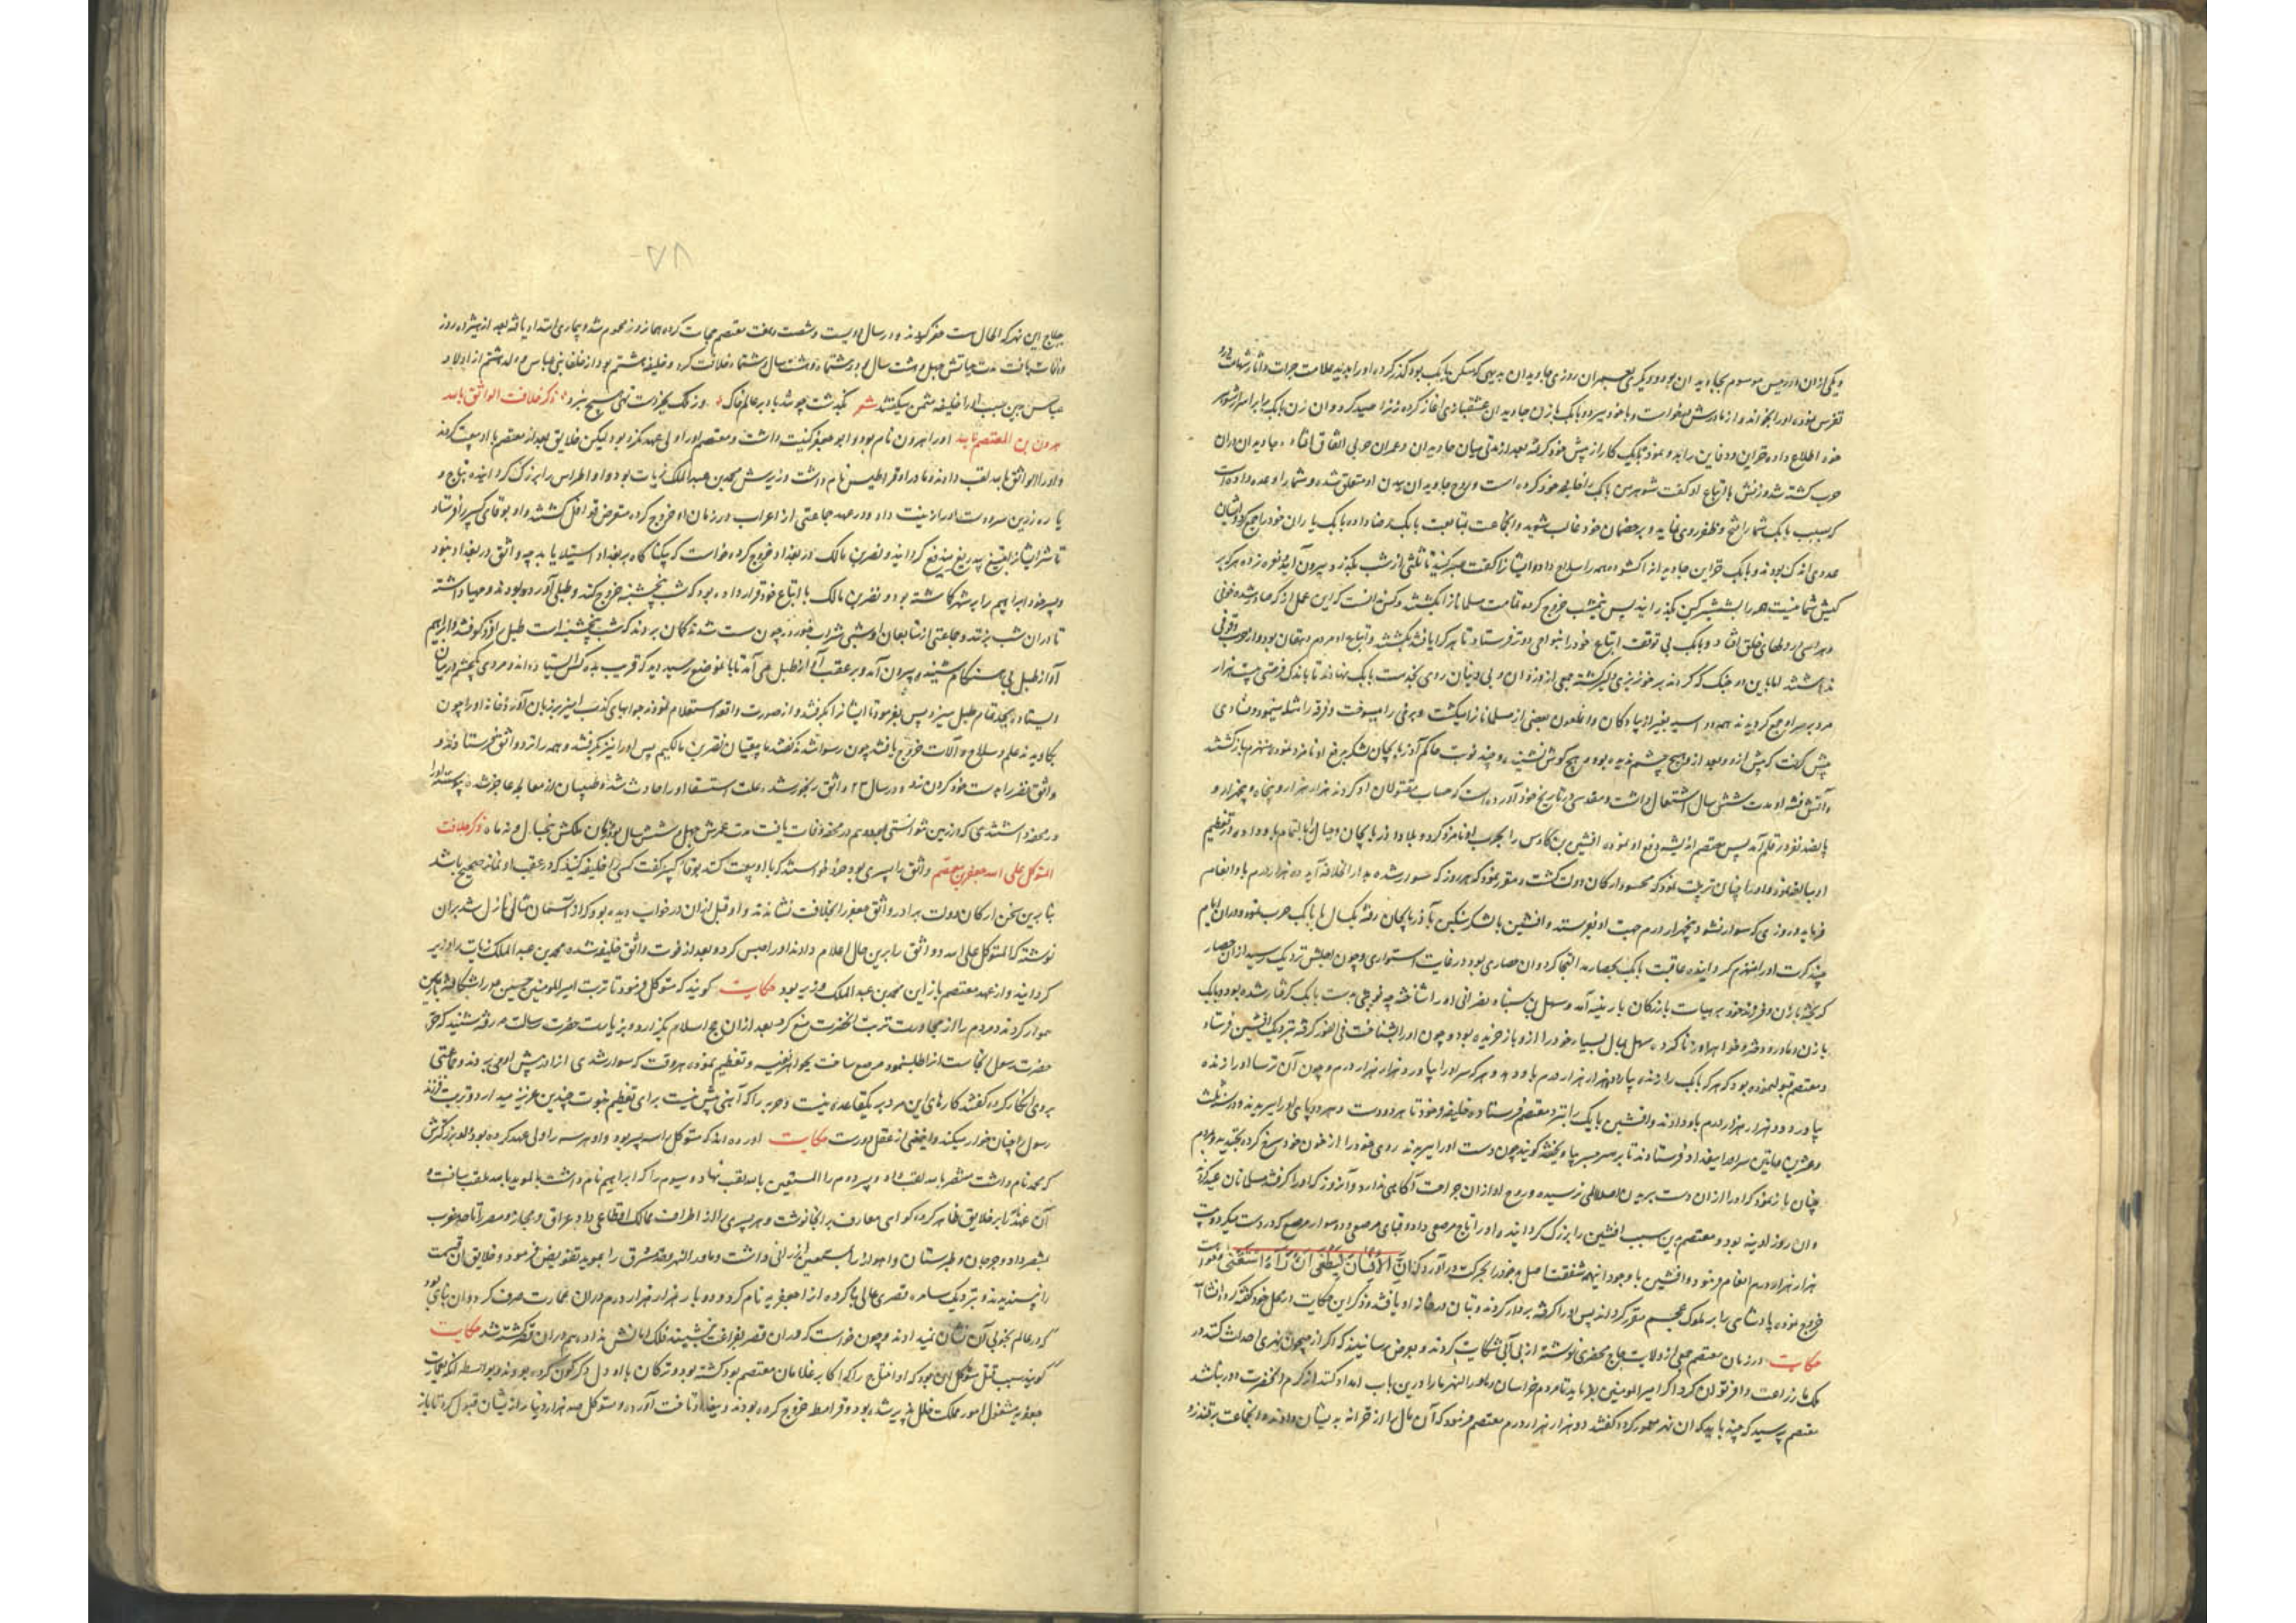 و یکی از ان دو رئیس موسوم بجاویدان بود و دیگری بعمران روزی جاویدان بدیهی که مسکن بابک بود گذر کرده او را بدید علامت جرات و آثار شهامت درو
تفرس نموده او را بخواند و از مادرش بخواست و با خود ببرد و بابک با زن جاویدان عشقبازی اغاز کرده زنرا صید کرد و ان زن بابک را بر اسرار شوهر
خود اطلاع داده خزاین و دفاین را بدو نمود تا بابک کار از پیش خود گرفت بعد از مدتی میان جاویدان و عمران حربی اتفاق افتاد و جاویدان در ان
حرب کشته شد و زنش با اتباع او گفت شوهر من بابک را خلیفه خود کرده است و روح جاویدان ببدن او متعلق شده و شما را وعده داده است
که بسبب بابک شما را فتح و ظفر روی نماید و بر خصمان خود غالب شوید و انجماعت بمتابعت بابک رضا داده بابک یاران خود را جمع کرد و ایشان
عددی اندک بودند و بابک خزاین جاویدان را کشوده همه را سلاح داد و ایشانرا گفت صبر کنید تا ثلثی از شب بگذرد بیرون آیید و نعره زده هر که بر
کیش شما نیست همه را بشمشیر کین بگذرانید پس نیمشب خروج کرده تمامت مسلمانانرا بکشتند و کس ندانست که این عمل از که صادر شده خوفی
و هراسی در دلهای خلق افتاد و بابک بی توقف اتباع خود را بنواحی دور تر فرستاد تا هر کرا یافتند بکشتند و اتباع او مردم دهقان بودند و از حرب وقوفی
نداشتند اما باین دو جنگ که کردند بر خونریزی دلیر گشته جمعی از دزدان و بی دینان روی بخدمت بابک نهادند تا باندک فرصتی بیست هزار
مرد بر سر او جمع گردیدند همه سوار و اسپه بغیر از پیادگان و انملعون بعضی از مسلمانانرا میکشت و برخی را میسوخت و فرقه را مثله مینمود و فسادی
پیش گرفت که پیش از و و بعد از و هیچ چشم ندیده بود و هیچ گوش نشنیده و چند نوبت حاکم آذربایجان لشکر بدفع او نامزد نموده منهزم باز گشتند
و آتش فتنه او مدت شش سال اشتعال داشت و مقدسی در تاریخ خود آورده است که حساب مقتولان او کردند هزار هزار و پنجاه و پنجهزار و
پانصد نفر در قلم آمد پس معتصم اندیشه دفع او نموده افشین بن کاوس را بحرب او نامزد کرد و بلاد آذربایجان و جبال را بالتمام باو داد و در تعظیم
او مبالغه نمود و او را چنان تربیت نمود که محسود ارکان دولت گشت و مقرر نمود که هر روز که سوار شده بدار الخلافه آید ده هزار درم باو انعام
فرماید و روزی که سوار نشود پنجهزار درم جهت او بفرستند و افشین با لشکر سنگین بآذربایجان رفته یکسال با بابک حرب نمود و در ان ایام
چند کرت او را منهزم گردانیده عاقبت بابک بحصار بد التجا کرد و ان حصاری بود در غایت استواری و چون لعلش نزدیک رسید از ان حصار
گریخته با زن و فرزند خود بر هیات بازرگانان بارمینیه آمد و سهل بن سنباط نصرانی او را شناخته چه نوبتی بدست بابک گرفتار شده بود و بابک
با زن و مادر و دختر و خواهر او زنا کرده سهل بمال بسیار خود را از و باز خریده بود و چون او را بشناخت فی الفور گرفته نزدیک افشین فرستاد
و معتصم قبول نموده بود که هر که بابک را زنده بیارد دو هزار هزار درم باو دهد و هر که سر او را بیاورد هزار هزار درم و چون آن ترسا او را زنده
بیاورد دو هزار هزار درم باو دادند و افشین بابک را بنزد معتصم فرستاد و خلیفه فرمود تا هر دو دست و هر دو پای او را ببریدند و در سنه ثلث
و عشرین و مایتین سر او را ببغداد فرستادند تا بر سر جسر بیاویختند گویند چون دست او را ببریدند روی خود را از خون خود سرخ کرده بخندید و بمردم
چنان باز نمود که او را از ان دست بریدن اصلا المی نرسیده و روح او از ان جراحت آگاهی ندارد و آنروز که او را گرفتند مسلمانان عید کردند
و ان روز ادینه بود و معتصم بدین سبب افشین را بزرگ گردانید و او را تاج مرصع داد و قبای مرصع و دو سوار مرصع که در دست میکرد و بیست
هزار هزار درم انعام فرمود و افشین با وجود اینهمه شفقت اصل بد خود را بحرکت در آورد که ان الانسان لیطغی ان رآه استغنی
خروج نموده پادشاهی را بر ملوک عجم مقرر گرداند پس او را گرفته بر دار کردند و بتان در خانه او یافتند و ذکر این حکایت در محل خود گفته گردد انشاالله
حکایت در زمان معتصم جمعی از ولایت چاچ محضری نوشته از بی آبی شکایت کردند و بعرض رسانیدند که اگر از جیحون نهری احداث کنند در
ملک ما زراعت وافر توان کرد اگر امیر المومنین بفرماید تا مردم خراسان و ماورا النهر ما را درین باب امداد کنند از کرم انحضرت دور نباشد
معتصم پرسید که چند باید که ان نهر معمور گردد گفتند دو هزار هزار درم معتصم فرمود که آن مال را از خزانه بدیشان دادند و انجماعت برفتند و
۱۷۷
بچاچ این نهر که الحال هست حفر کردند و در سال دویست و شصت و هفت معتصم حجامت کرده همانروز محموم شد و بیماری امتداد یافته بعد از هژده روز
وفات یافت مدت حیاتش چهل و هشت سال بود و هشت ماه و هشت سال و هشت ماه خلافت کرد و خلیفه هشتم بود از خلفا بنی عباس و ولد هشتم از اولاد
عباس بدین سبب او را خلیفه مثمن میگفتند شعر بگذشت چو شد باد بر عالم خاک و ز ملک بجز دست تهی هیچ نبرد ذکر خلافت الواثق بالله
هرون بن المعتصم بالله او را هرون نام بود و ابو جعفر کنیت داشت و معتصم او را ولی عهد نکرده بود لیکن خلایق بعد از معتصم با او بیعت کردند
و او را الواثق بالله لقب دادند و مادر او قراطیس نام داشت و وزیرش محمد بن عبد الملک زیات بود و او اطراس را بزرگ گردانیده بتاج و
یاره زرین سر و دست او را زینت داد و در عهد جماعتی از اعراب در زمان او خروج کرده متعرض قوافل گشتند و او بوقای کبیر را فرستاد
تا شر ایشانرا بتیغ بیدریغ مندفع گردانید و نصر بن مالک در بغداد خروج کرده خواست که بیکناگاه بر بغداد استیلا یابد چه واثق در بغداد نبود
و پسر خود ابراهیم را بر شهر گماشته بود و نصر بن مالک با اتباع خود قرار داده بود که شب پنجشنبه خروج کند و طبلی آورده بودند و مهیا داشته
تا در ان شب بزنند و جماعتی از متابعان او شبی شراب خورده چون مست شدند گمان بردند که شب پنجشنبه است طبل را فرو کوفتند و ابراهیم
آواز طبل بی هنگام شنیده بیرون آمد و بر عقب آواز طبل می آمد تا بانموضع رسید دید که قریب بده کس ایستاده اند و مردی یکچشم در میان
ایستاده بجد تمام طبل میزند پس بفرمود تا ایشانرا بگرفتند و از صورت واقعه استعلام نمودند جوابهای کذب امیز بر زبان آوردند خانه او را چون
بکاویدند علم و سلاح و آلات خروج یافتند چون رسوا شدند گفتند ما بیعتیان نصر بن مالکیم پس او را نیز بگرفتند و همه را نزد واثق بفرستادند و
واثق نصر را بدست خود گردن بزد و در سال ۲۳۲ واثق رنجور شد و علت استسقا او را حادث شد و طبیبان از معالجه عاجز شده پیوسته او را
در محفه داشتندی که از زمین نتوانستی بجنبد هم در محفه وفات یافت مدت عمرش چهل و شش سال بود و زمان ملکش پنجسال و نه ماه ذکر خلافت
المتوکل علی الله جعفر بن معتصم واثق را پسری بود خورد خواستند که با او بیعت کنند بوقا کبیر گفت کسی را خلیفه کنید که در عقب او نماز صحیح باشد
بنا برین سخن ارکان دولت برادر واثق جعفر را بخلافت نشاندند و او قبل از ان در خواب دیده بود که از آسمان مثالی نازل شد بر ان
نوشته که المتوکل علی الله و واثق را برین حال اعلام دادند او را حبس کرد و بعد از فوت واثق خلیفه شده محمد بن عبد الملک زیات را وزیر
گردانید و از عهد معتصم باز این محمد بن عبد الملک وزیر بود حکایت گویند که متوکل فرمود تا تربت امیر المومنین حسین را بشکافتند و با زمین
هموار کردند و مردم را از مجاورت تربت انحضرت منع کرد بعد از ان حج اسلام بگزارد و بزیارت حضرت رسالت رفت شنید که حق
حضرت رسول انجاست انرا طلبنموده مرصع ساخت بجواهر نفیسه و تعظیم نموده هر وقت که سوار شدی انرا در پیش او می بردند و جماعتی
بر وی انکار کرده گفتند کارهای این مرد بر یکقاعده نیست و حربه را که آهنی بیش نیست برای تعظیم نبوت چندین عزیز میدارد و تربت فرزند
رسول را چنان خوار میکند و اینمعنی از عقل دورست حکایت اورده اند که متوکل را سه پسر بود و او هر سه را ولی عهد کرده بود ولد بزرگترش
که محمد نام داشت منتصر بالله لقب داد و پسر دوم را المستعین بالله لقب نهاد و سیوم را که ابراهیم نام داشت بالموید بالله ملقب ساخت و
آن عهد را بر خلایق ظاهر کرده گواهی معارف بر انجا نوشت و هر پسری را از اطراف ممالک اقطاعی داد و عراق و حجاز و مصر را تا حد مغرب
بمنتصر داد و جرجان و طبرستان و اهواز را بمستعین ارزانی داشت و ماورا النهر و حد مشرق را بموید تفویض فرمود و خلایق ان قسمت
را پسندیدند و نزدیک سامره قصری عالی بنا کرده انرا جعفریه نام کرد و دو بار هزار هزار درم در ان عمارت صرف کرد و ان بنایی بود
که در عالم بخوبی آن نشان نمیدادند و چون خواست که در ان قصر بفراغت بنشیند فلک امانش نداد و هم در ان قصر کشته شد حکایت
گویند سبب قتل متوکل ان بود که او اینتاخ را که از اکابر غلامان معتصم بود کشته بود و ترکان با او دل دگرگون کرده بودند و بواسطه انکه بعمارت
جعفریه مشغول امور مملکت خلل پذیر شده بود و قرامطه خروج کرده بودند و ببغداد تاخت آوردند و متوکل صد هزار دینار از ایشان قبول کرد تا باز